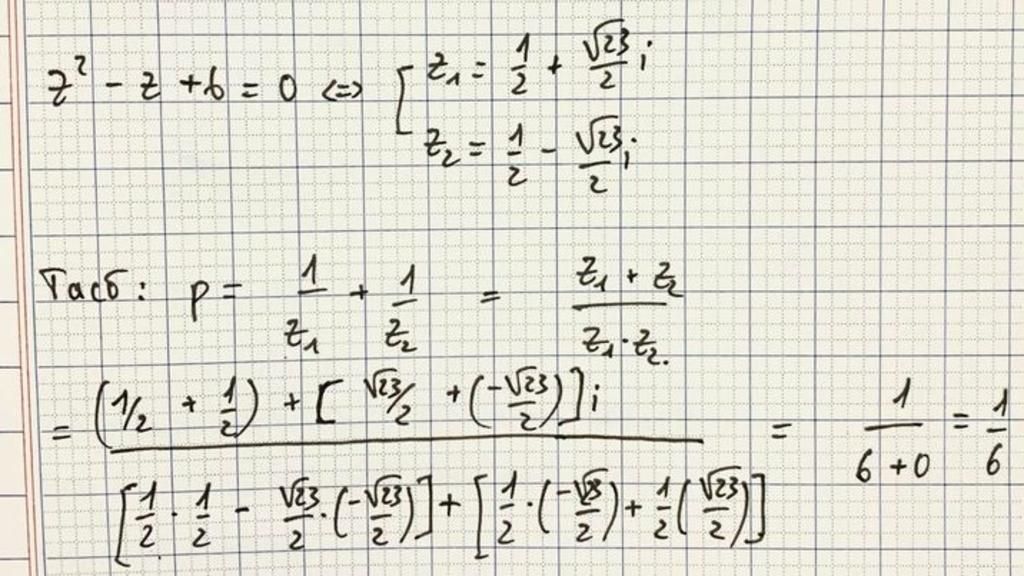 z² - z + 6 = 0 <=> [ z₁ = 1/2 + √23/2 i
z₂ = 1/2 - √23/2 i
Тасб: p = 1/z₁ + 1/z₂ = (z₁ + z₂)/(z₁ · z₂.)
= ((1/2 + 1/2) + [√23/2 + (-√23/2)]i) / ([1/2 · 1/2 - √23/2 · (-√23/2)] + [1/2 · (-√23/2) + 1/2 (√23/2)]) = 1/(6 + 0) = 1/6